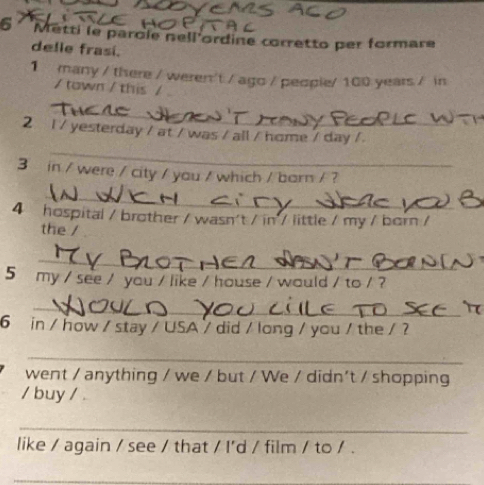 100 YEARS AGO
LITTLE HOPITAL
6 Metti le parole nell'ordine corretto per formare
delle frasi.
1 many / there / weren't / ago / people/ 100 years / in
/ town / this / .
THERE WEREN'T MANY PEOPLE WITH
2 I / yesterday / at / was / all / home / day /.
3 in / were / city / you / which / born / ?
IN WICH CITY WERE YOU B
4 hospital / brother / wasn't / in / little / my / born /
the / .
MY BROTHER WASN'T BORN IN
5 my / see / you / like / house / would / to / ?
WOULD YOU LIKE TO SEE
6 in / how / stay / USA / did / long / you / the / ?
went / anything / we / but / We / didn't / shopping
/ buy / .
like / again / see / that / I'd / film / to / .